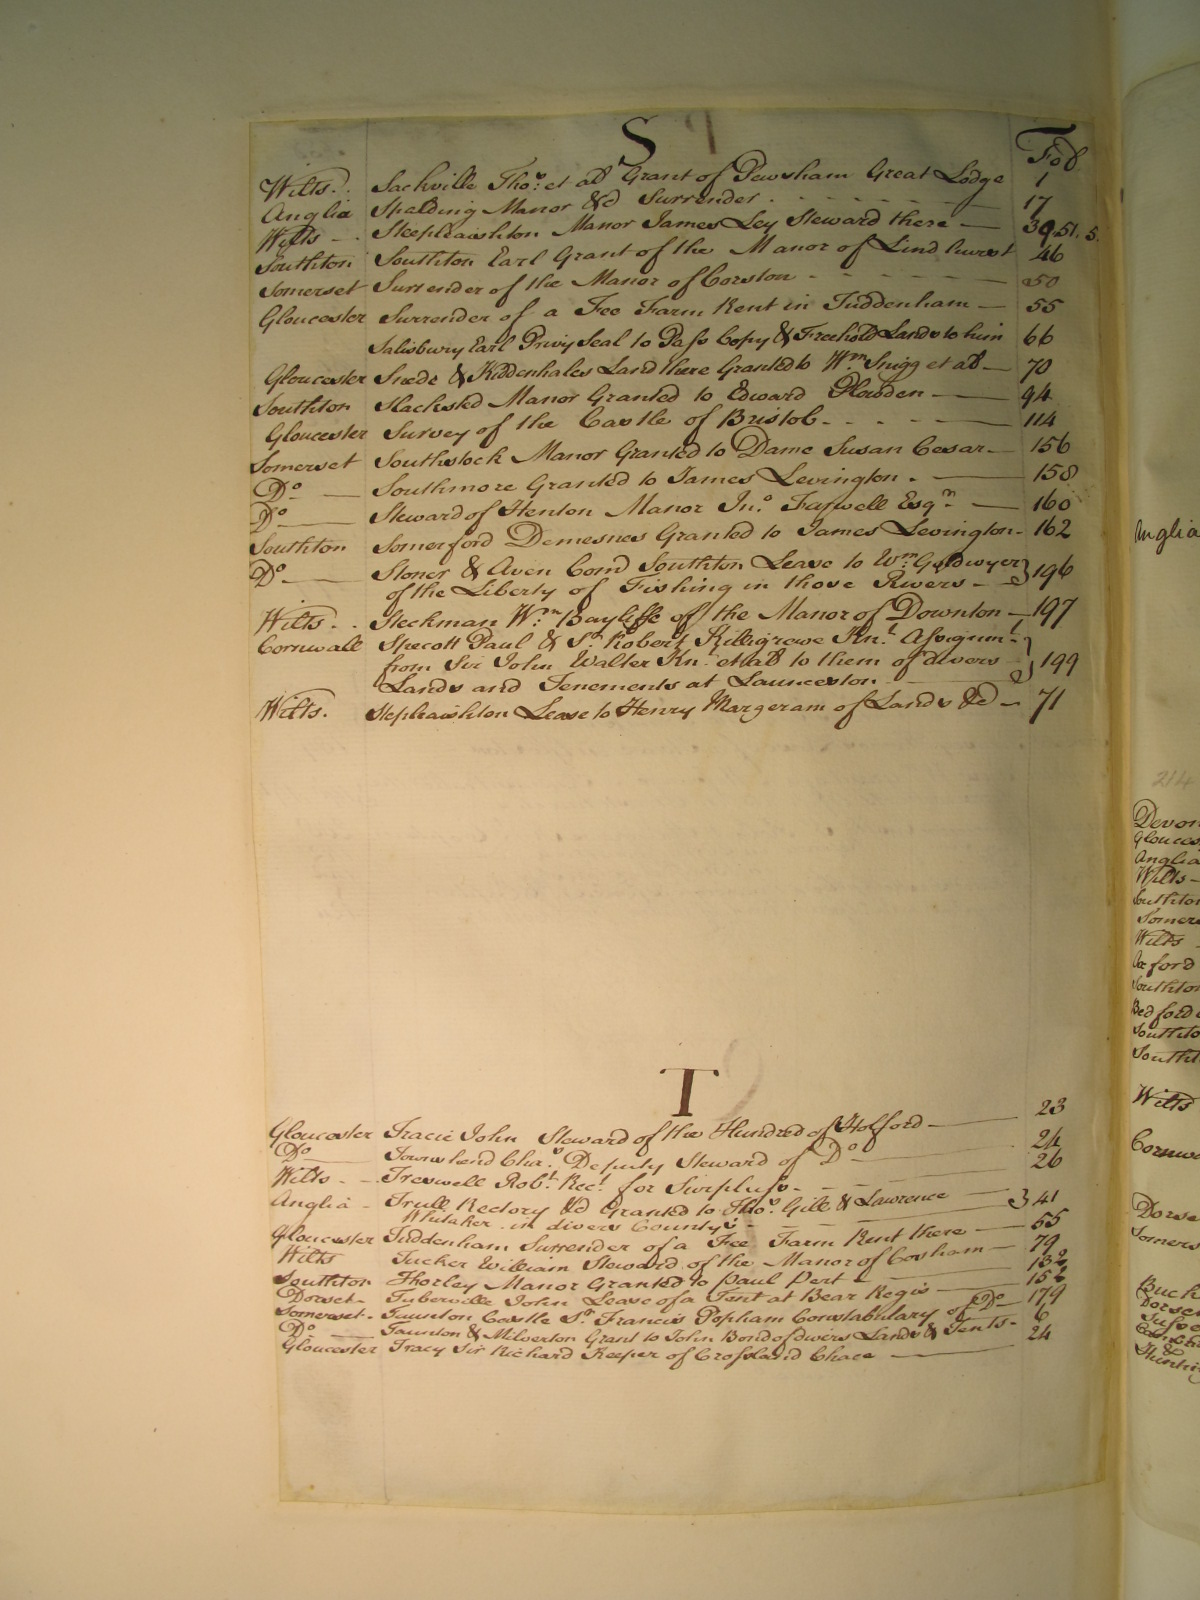 S
Fol.
Wilts. Sackville Thos. et al Grant of Pewsham Great Lodge 1
Anglia Spalding Manor &c Surrender 17
Wilts Steepleashton Manor James Ley Steward there 39,51.5.
Southton Southton Earl Grant of the Manor of Lindhurst 46
Somerset Surrender of the Manor of Corston 50
Gloucester Surrender of a Fee Farm Rent in Tuddenham 55
Salisbury Earl Privy Seal to Pass Copy & Freehold Lands to him 66
Gloucester & Kiddenhales Land there Granted to Wm. Snigg et al 70
Southton Slacksted Manor Granted to Edward Plowden 94
Gloucester Survey of the Castle of Bristol 114
Somerset Southstock Manor Granted to Dame Susan Cesar 156
Do Southmore Granted to James Levington 158
Do Steward of Henton Manor Jno. Farwell Esqr. 160
Southton Somerford Demesnes Granted to James Levington 162
Do Stoner & Aven Com Southton Lease to Wm. Goldwyer
of the Liberty of Fishing in those Rivers 196
Wilts. Steckman Wm. Bayliffe of the Manor of Downton 197
Cornwall Specott Paul & Sr. Robert Killigrewe Knt. Assignmt.
from Sir John Walter Knt. et al to them of divers 199
Lands and Tenements at Launceston
Wilts. Stepleashton Lease to Henry Margeram of Lands &c 71
T
Gloucester Tracie John Steward of the Hundred of Holford 23
Do Townshend Chas. Deputy Steward of Do 24
Wilts Treswell Robt. Rect. for Surpluss 26
Anglia Trull Rectory &c Granted to Thos. Gill & Lawrence
Whitaker in divers Countys 41
Gloucester Tuddenham Surrender of a Fee Farm Rent there 55
Wilts Tucker William Steward of the Manor of Cosham 79
Southton Thorley Manor Granted to Paul Pert 132
Dorset Tuberville John Lease of a Tent at Bear Regis 152
Somerset Taunton Castle Sr. Francis Popham Constabulary of Do 179
Do Taunton & Milverton Grant to John Bond of divers Lands & Tents 6
Gloucester Tracy Sir Richard Keeper of Crossland Chace 24
Anglia
214
Devon
Glouces
Anglia
Wilts
Southton
Somers
Wilts
Oxford
Southton
Bedford
Southto
Southt
Wilts
Cornwa
Dorse
Somers
Buck
Dorset
&